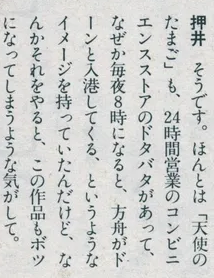 押井　そうです。ほんとは「天使の
たまご」も、24時間営業のコンビニ
エンスストアのドタバタがあって、
なぜか毎夜8時になると、方舟がド
ーンと入港してくる、というような
イメージを持っていたんだけど、な
んかそれをやると、この作品もボツ
になってしまうような気がして。